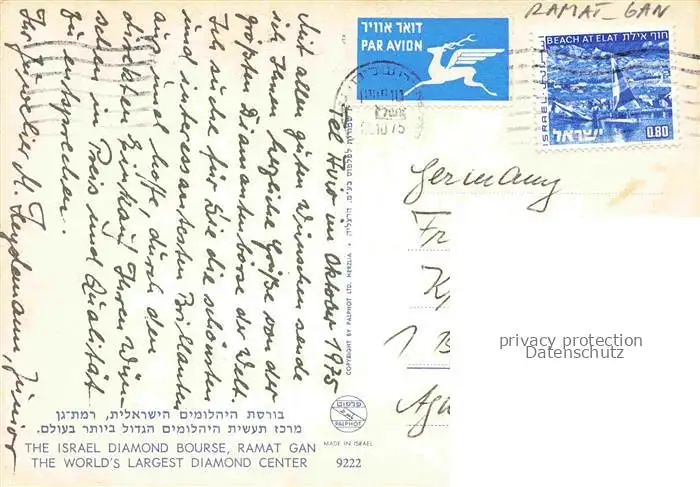 RAMAT-GAN
דואר אוויר
PAR AVION
חוף אילת
BEACH AT ELAT
ISRAEL
ישראל
0.80
10 75
Tel Aviv im Oktober 1975
Mit allen guten Wünschen sende
ich Ihnen herzliche Grüße von der
größten Diamantenbörse der Welt.
Ich suche für Sie die schönsten
und interessantesten Brillanten
aus und hoffe, durch den
direkten Einkauf Ihren Wün-
schen in Preis und Qualität
zu entsprechen.
Ihr Juwelier M. Heydemann, Junior
Germany
Fr
K
1 B
privacy protection
Datenschutz
COPYRIGHT BY PALPHOT LTD. HERZLIA
פלפוט
PALPHOT
MADE IN ISRAEL
בורסת היהלומים הישראלית, רמת-גן
מרכז תעשית היהלומים הגדול ביותר בעולם.
THE ISRAEL DIAMOND BOURSE, RAMAT GAN
THE WORLD'S LARGEST DIAMOND CENTER
9222